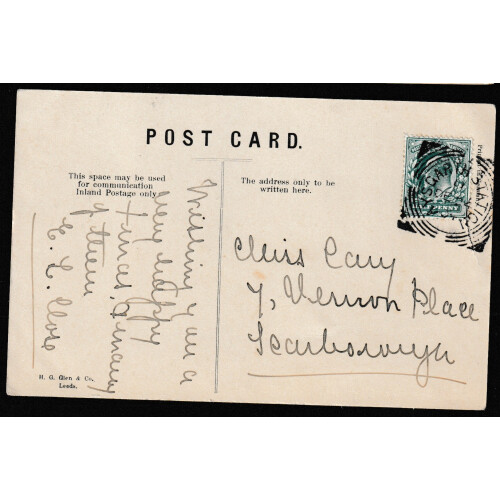 POST CARD.
This space may be used
for communication
Inland Postage only
The address only to be
written here.
Wishing you a
very happy
times & many
of them
E. L. Close
Miss Cary
7, Vernon Place
Scarborough
PENNY
H. G. Glen & Co.,
Leeds.